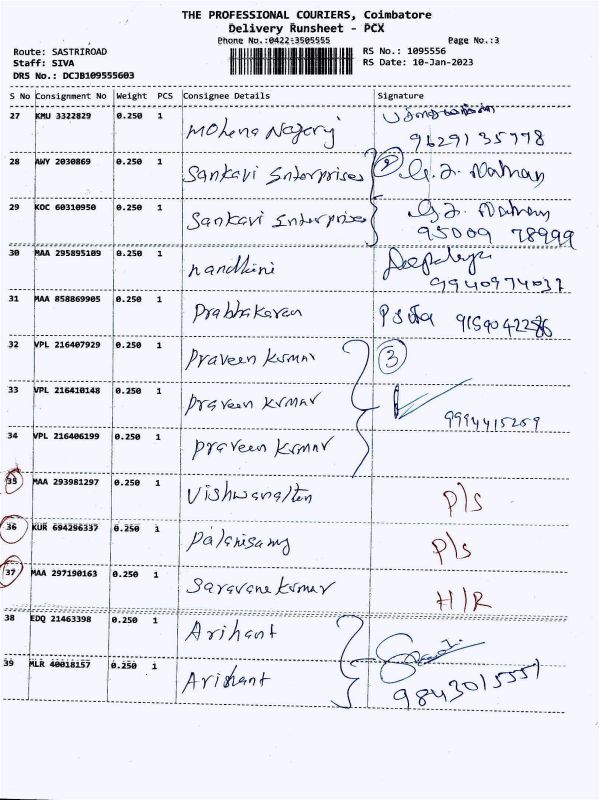 THE PROFESSIONAL COURIERS, Coimbatore
Delivery Runsheet - PCX
Phone No.:0422-3505555 Page No.:3
Route: SASTRIROAD RS No.: 1095556
Staff: SIVA RS Date: 10-Jan-2023
DRS No.: DCJB109555603
S No Consignment No Weight PCS Consignee Details Signature
27 KMU 3322829 0.250 1 Mohena Nagaraj
9629135778
28 AWY 2030869 0.250 1 Sankavi Enterprises 2 G. J. Nathan
29 KOC 60310950 0.250 1 Sankavi Enterprises G J. Nathan
95009 78999
30 MAA 295895109 0.250 1 nandhini
9940974037
31 MAA 858869905 0.250 1 Prabhakaran
32 VPL 216407929 0.250 1 Praveen kumar 3
33 VPL 216410148 0.250 1 praveen kumar
9994415259
34 VPL 216406199 0.250 1 praveen kumar
35 MAA 293981297 0.250 1 Vishwanathan P/S
36 KUR 694296337 0.250 1 Palanisamy P/S
37 MAA 297190163 0.250 1 Saravanakumar H/R
38 EDQ 21463398 0.250 1 Arihant
39 MLR 40018157 0.250 1 Arihant 9843015551